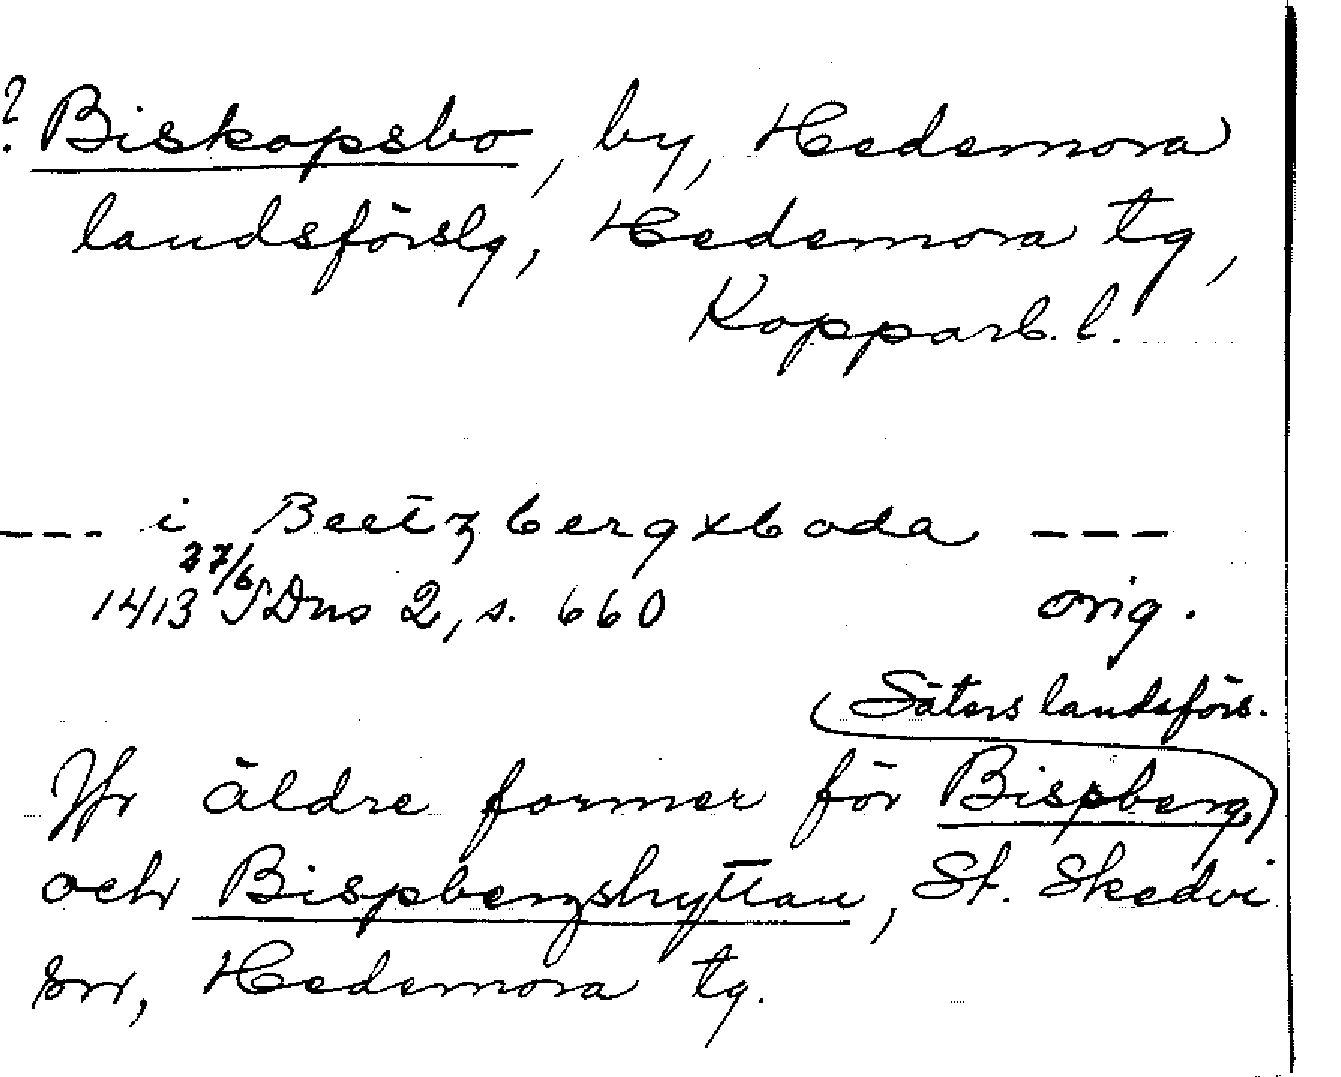 ? Biskopsbo, by, Hedemora
landsförslg, Hedemora tg,
Kopparb. l.
--- i Beetzbergxboda ---
1413 27/6 SDns 2, s. 660 orig.
Säters landsförs.
Jfr äldre former för Bispberg,
och Bispbergshyttan, St. Skedvi
sn, Hedemora tg.